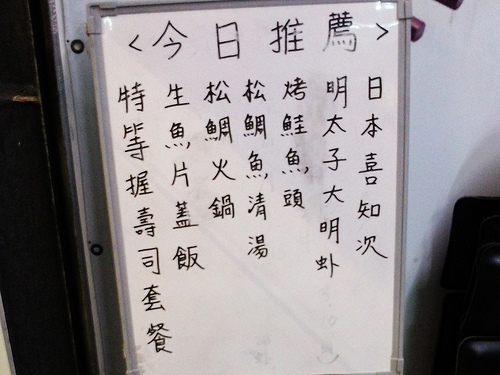 <今日推薦>
日本喜知次
明太子大明虾
烤鮭魚頭
松鯛魚清湯
松鯛火鍋
生魚片蓋飯
特等握壽司套餐